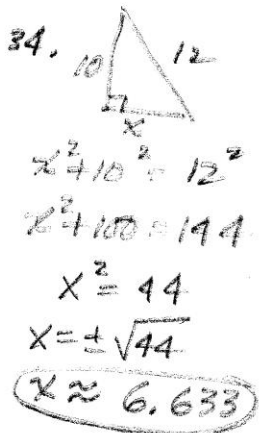 34.
10 12
x
x²+10² = 12²
x²+100 = 144
x² = 44
x = ±√44
x ≈ 6.633